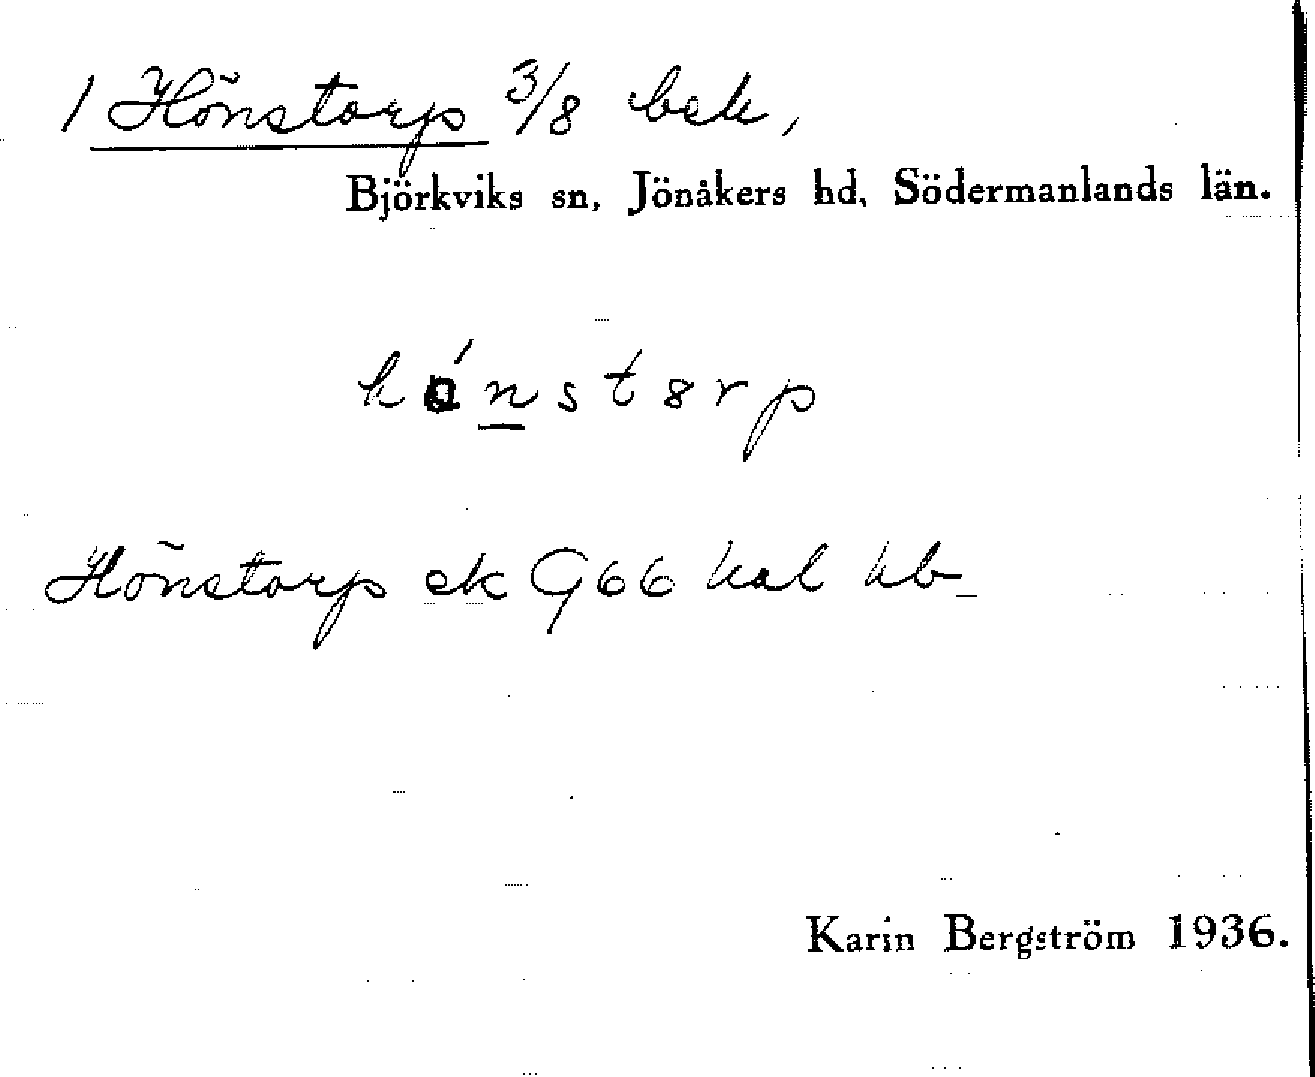 1 Hönstorp 3/8 bek,
Björkviks sn, Jönåkers hd, Södermanlands län.
Hönstorp ek G66 kal hb
Karin Bergström 1936.